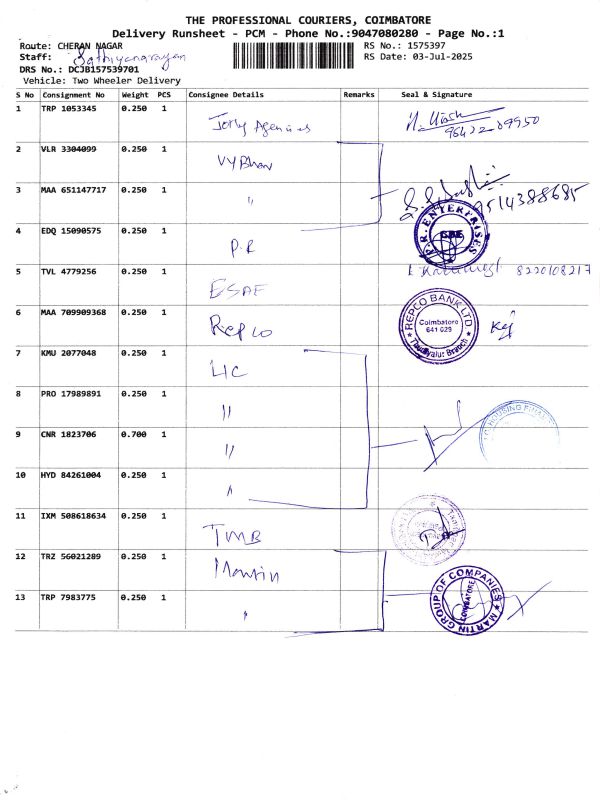 THE PROFESSIONAL COURIERS, COIMBATORE
Delivery Runsheet - PCM - Phone No.:9047080280 - Page No.:1
Route: CHERAN NAGAR RS No.: 1575397
Staff: Sathiyanarayan RS Date: 03-Jul-2025
DRS No.: DCJB157539701
Vehicle: Two Wheeler Delivery
S No Consignment No Weight PCS Consignee Details Remarks Seal & Signature
1 TRP 1053345 0.250 1 Jolly Agencies
2 VLR 3304099 0.250 1
3 MAA 651147717 0.250 1 " 9514388685
4 EDQ 15090575 0.250 1 P.R P.R. ENTERPRISES
5 TVL 4779256 0.250 1 ESAF 8220108217
6 MAA 709909368 0.250 1 Repco REPCO BANK LTD Coimbatore 641 029 Thudiyalur Branch
7 KMU 2077048 0.250 1 LIC
8 PRO 17989891 0.250 1 "
9 CNR 1823706 0.700 1 " HOUSING FINA
10 HYD 84261004 0.250 1 "
11 IXM 508618634 0.250 1 TMB
12 TRZ 56021289 0.250 1 Martin
13 TRP 7983775 0.250 1 " MARTIN GROUP OF COMPANIES COIMBATORE